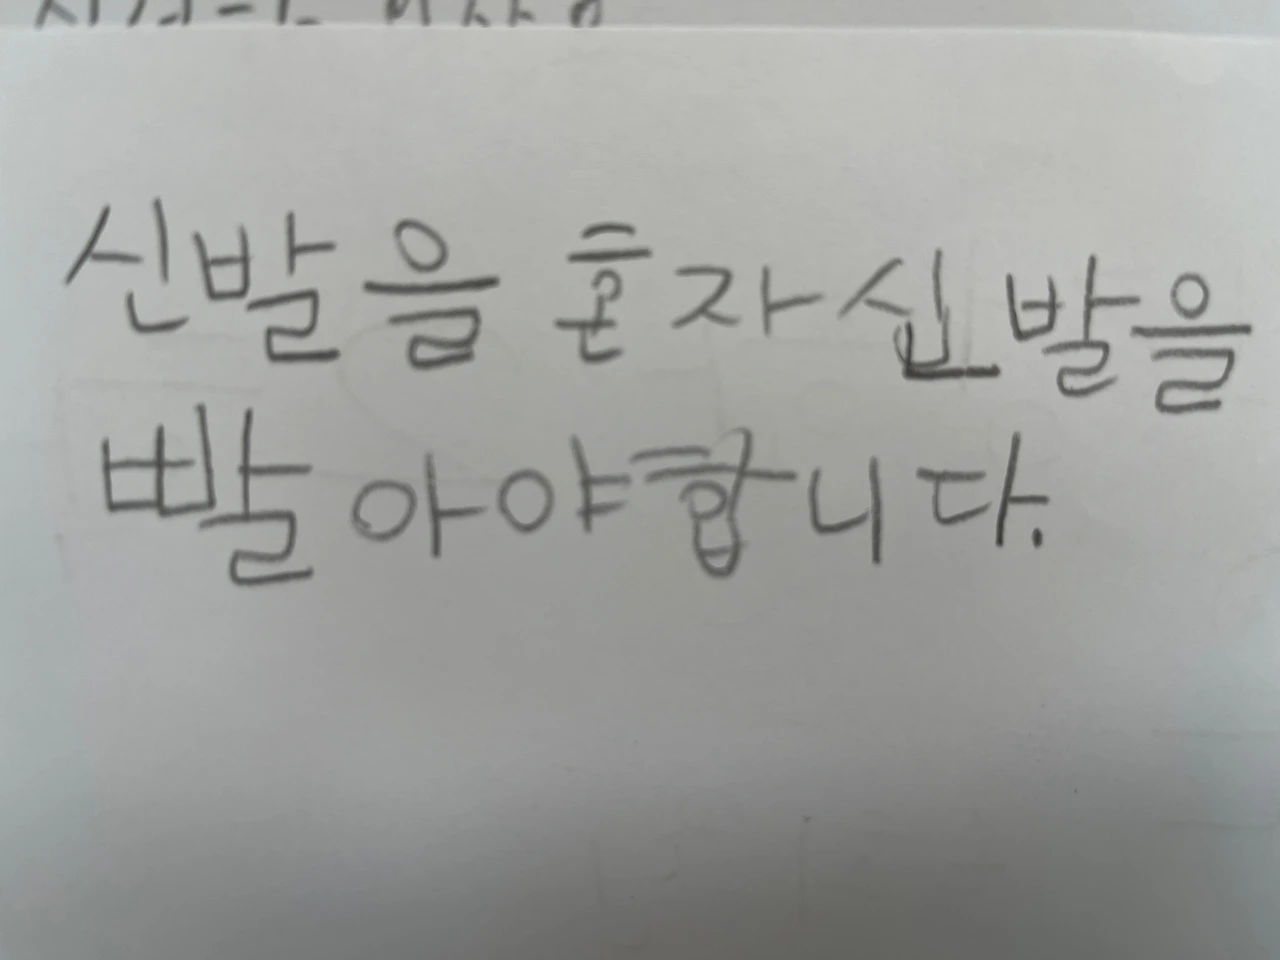 신발을 혼자신발을
빨아야합니다.